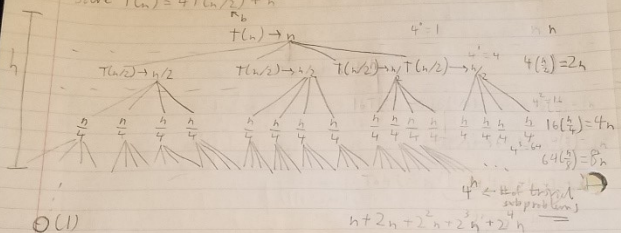 T(n) = 4T(n/2) + n
T(n) → n 4⁰ = 1 n
h T(n/2) → n/2 T(n/2) → n/2 T(n/2) → n/2 T(n/2) → n/2 4¹ = 4 4(n/2) = 2n
4² = 16
n/4 n/4 n/4 n/4 n/4 n/4 n/4 n/4 n/4 n/4 n/4 n/4 n/4 n/4 n/4 n/4 16(n/4) = 4n
4³ = 64
64(n/8) = 8n
4ʰ ← # of trivial
subproblems
Θ(1) n + 2n + 2²n + 2³n + 2⁴n